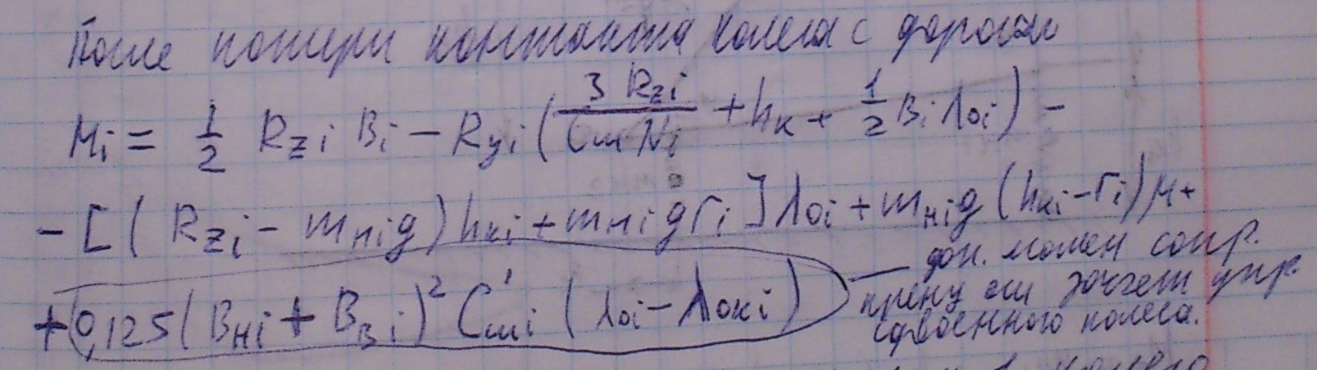 После потери контакта колеса с дорогой
Mi = 1/2 Rzi Bi − Ryi ( 3 Rzi / Cш Ni + hк + 1/2 Bi λoi ) −
− [ ( Rzi − mнig ) hкi + mнi g ri ] λoi + mнig (hкi − ri) M +
+ 0,125 ( Bнi + Bвi )² C'шi ( λoi − λoкi )
доп. момен сопр.
крену за счет упр.
сдвоенного колеса.
колесо